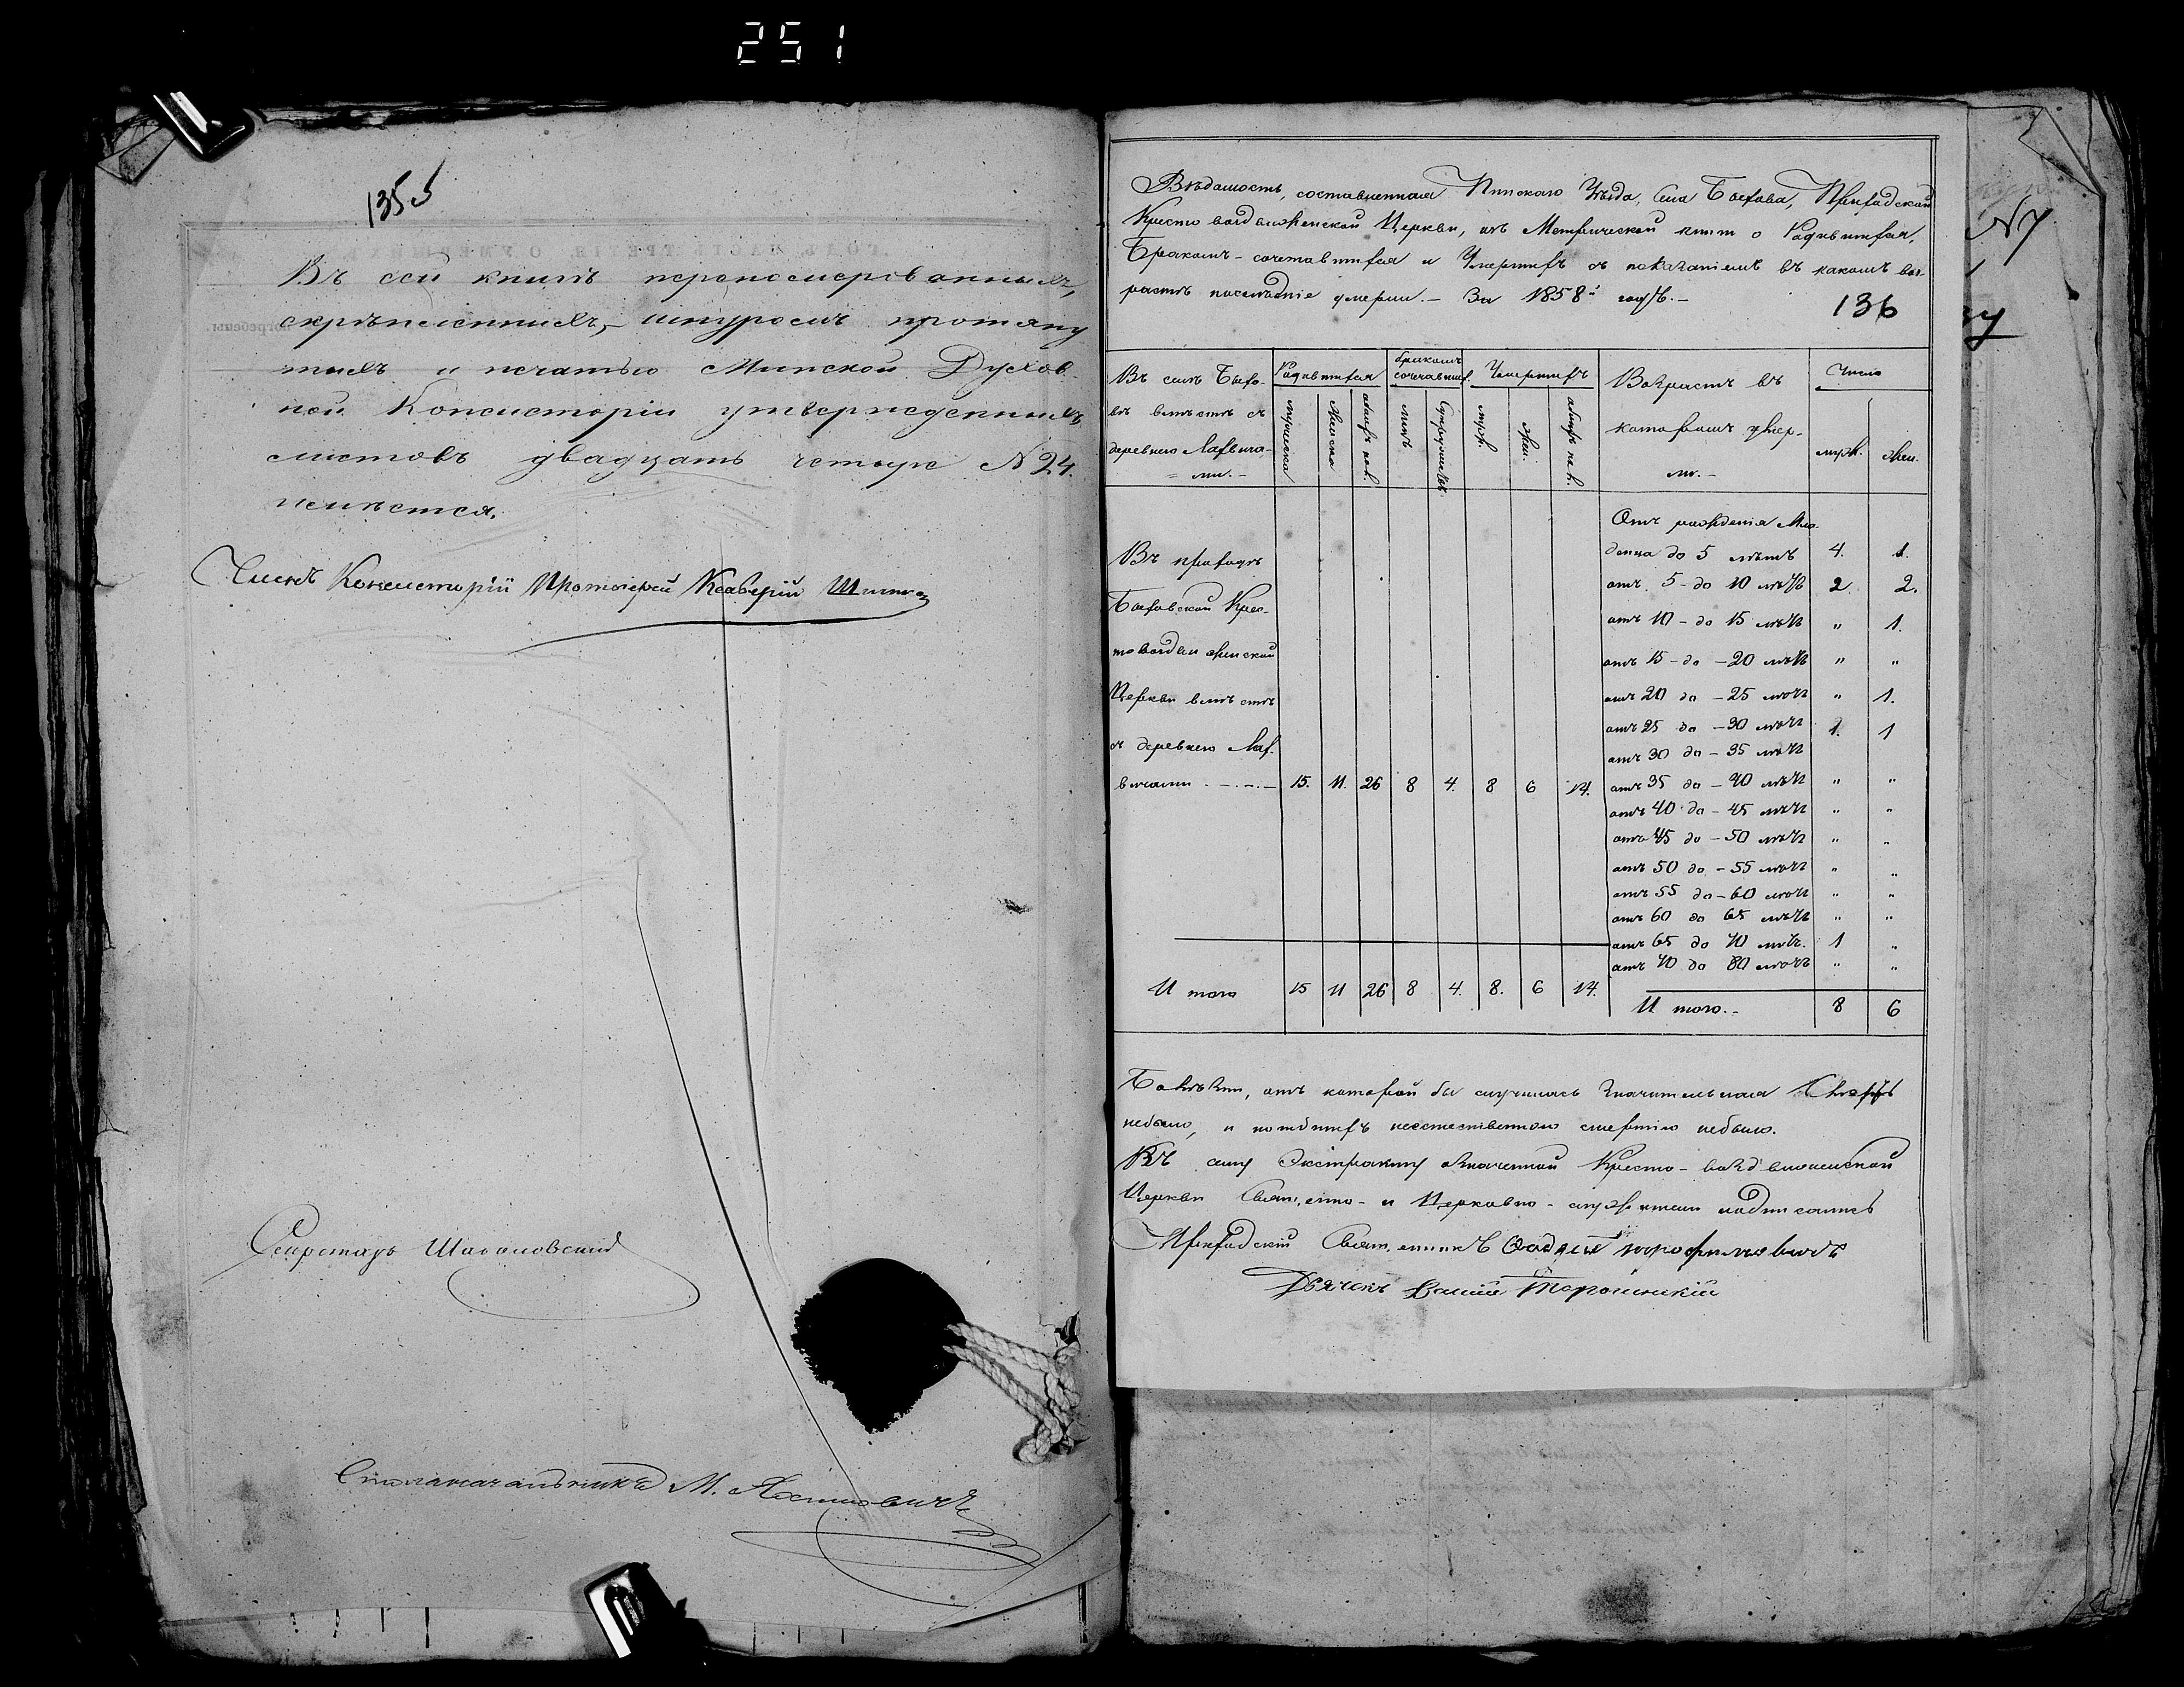 251
135 об
Въ сей книгѣ перенумерованныхъ,
скрѣпленныхъ, шнуромъ протяну
тыхъ и печатью Минской Духов-
ной Консисторіи утвержденныхъ
листовъ двадцать четыре N 24.
имѣется.
Членъ Консисторіи Протоіерей Ксаверій
Секретарь
Столоначальникъ М.
N 7
Вѣдомость, составленная Пинскаго Уѣзда, Села Бостова, Приходской
Кресто воздвиженской Церкви, изъ Метрической книги о Родившихся,
Бракомъ-сочетавшихся и Умершихъ съ показаніемъ въ какомъ воз-
растѣ послѣдніе умерли.- За 1858й годъ.-
136
Въ селѣ
вѣ вмѣстѣ съ
деревнею
ми.-
Родившихся
мужеска
Женска
обоихъ пол.
бракомъ
сочетавших.
лицъ
Супружествъ
Умершихъ
муж.
жен.
обоихъ пол.
Возрастъ въ
которомъ умер-
ли.-
Число
муж.
жен.
Въ приходѣ
Крес-
товоздвиженской
Церкви вмѣстѣ
съ деревнею
15. 11. 26 8 4. 8 6 14.
Отъ рожденія Мла-
денца до 5 лѣтъ 4. 1.
отъ 5-до 10 лѣтъ 2 2.
отъ 10-до 15 лѣтъ " 1.
отъ 15-до-20 лѣтъ " "
отъ 20 до-25 лѣтъ " 1.
отъ 25 до-30 лѣтъ 1. 1
отъ 30 до-35 лѣтъ
отъ 35 до-40 лѣтъ " "
отъ 40 до-45 лѣтъ " "
отъ 45 до-50 лѣтъ " "
отъ 50 до-55 лѣтъ " "
отъ 55 до-60 лѣтъ " "
отъ 60 до 65 лѣтъ " "
отъ 65 до 70 лѣтъ. 1 "
отъ 70 до 80 лѣтъ " "
И того 15 11 26 8 4. 8. 6 14.
И того.- 8 6
Болѣзни, отъ которой бы случилась значительная Смерть
небыло, и погибшихъ неестественною смертію небыло.
Къ сему Экстракту означенной Кресто-воздвиженской
Церкви Священно-и Церковно-служители подписались
Приходскій Священникъ
Дьячокъ